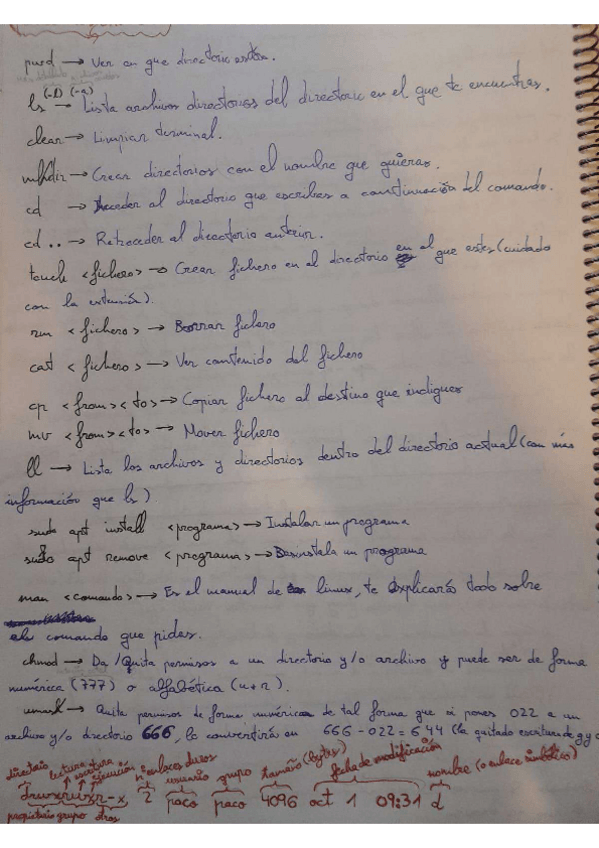 pwd → Ver en que directorio estás.
(-l) (-a)
ls → Lista archivos directorios del directorio en el que te encuentras.
clear → Limpiar terminal.
mkdir → Crear directorios con el nombre que quieras.
cd → Acceder al directorio que escribes a continuación del comando.
cd .. → Retroceder al directorio anterior.
touch <fichero> → Crear fichero en el directorio en el que estes (cuidado
con la extensión).
rm <fichero> → Borrar fichero
cat <fichero> → Ver contenido del fichero
cp <from> <to> → Copiar fichero al destino que indiques
mv <from> <to> → Mover fichero
ll → Lista los archivos y directorios dentro del directorio actual (con más
información que ls)
sudo apt install <programa> → Instalar un programa
sudo apt remove <programa> → Desinstala un programa
man <comando> → Es el manual de linux, te explicará todo sobre
el comando que pidas.
chmod → Da/Quita permisos a un directorio y/o archivo y puede ser de forma
numérica (777) o alfabética (u+r).
umask → Quita permisos de forma numérica de tal forma que si pones 022 a un
archivo y/o directorio 666, lo convertirás en 666-022=644 (ha quitado escritura de g y o
directorio lectura escritura ejecución nº enlaces duros usuario grupo tamaño (bytes) fecha de modificación nombre (o enlace simbólico)
drwxrwxr-x 2 paco paco 4096 oct 1 09:31 d
propietario grupo otros